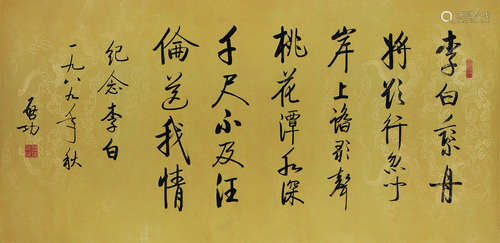 李白乘舟
將欲行忽聞
岸上踏歌聲
桃花潭水深
千尺不及汪
倫送我情
紀念李白
一九八九年秋
啟功